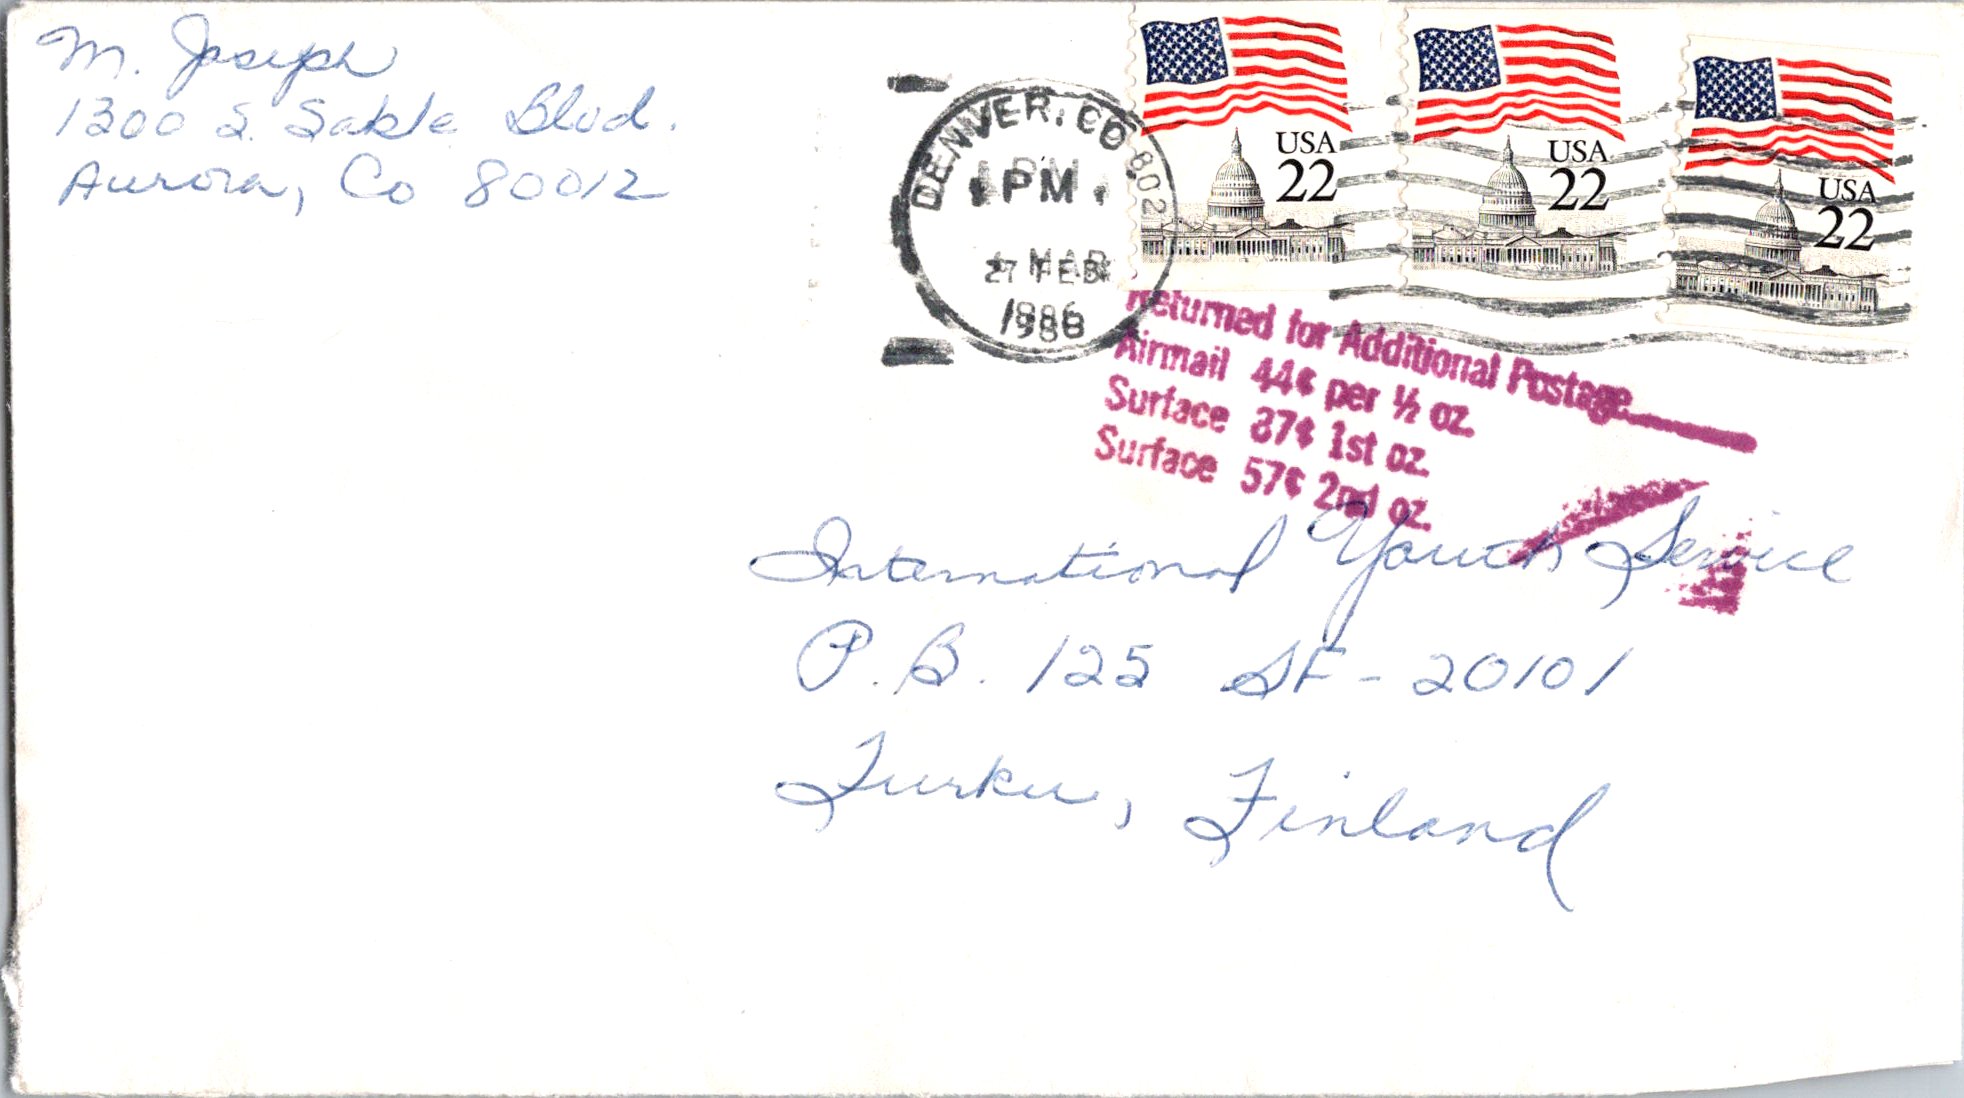 M. Joseph
1300 S. Sable Blvd.
Aurora, Co 80012
DENVER, CO 802
PM
27 FEB
MAR
1986
USA
22
USA
22
USA
22
Returned for Additional Postage
Airmail 44¢ per ½ oz.
Surface 37¢ 1st oz.
Surface 57¢ 2nd oz.
International Youth Service
P.B. 125 SF-20101
Turku, Finland